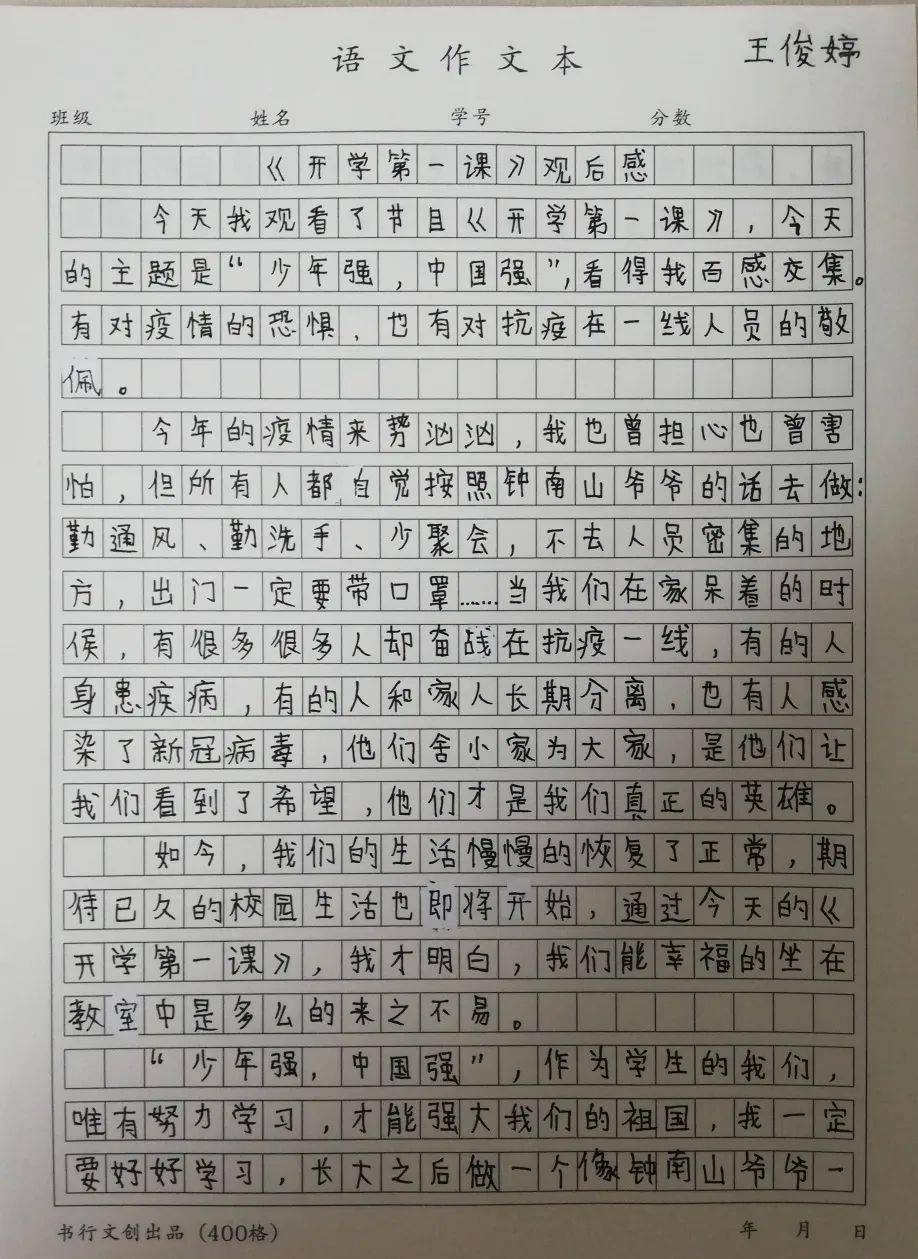 语文作文本
王俊婷
班级 姓名 学号 分数
《开学第一课》观后感
今天我观看了节目《开学第一课》，今天
的主题是“少年强，中国强”，看得我百感交集。
有对疫情的恐惧，也有对抗疫在一线人员的敬
佩。
今年的疫情来势汹汹，我也曾担心也曾害
怕，但所有人都自觉按照钟南山爷爷的话去做：
勤通风、勤洗手、少聚会，不去人员密集的地
方，出门一定要带口罩……当我们在家呆着的时
侯，有很多很多人却奋战在抗疫一线，有的人
身患疾病，有的人和家人长期分离，也有人感
染了新冠病毒，他们舍小家为大家，是他们让
我们看到了希望，他们才是我们真正的英雄。
如今，我们的生活慢慢的恢复了正常，期
待已久的校园生活也即将开始，通过今天的《
开学第一课》，我才明白，我们能幸福的坐在
教室中是多么的来之不易。
“少年强，中国强”，作为学生的我们，
唯有努力学习，才能强大我们的祖国，我一定
要好好学习，长大之后做一个像钟南山爷爷一
书行文创出品（400格） 年 月 日